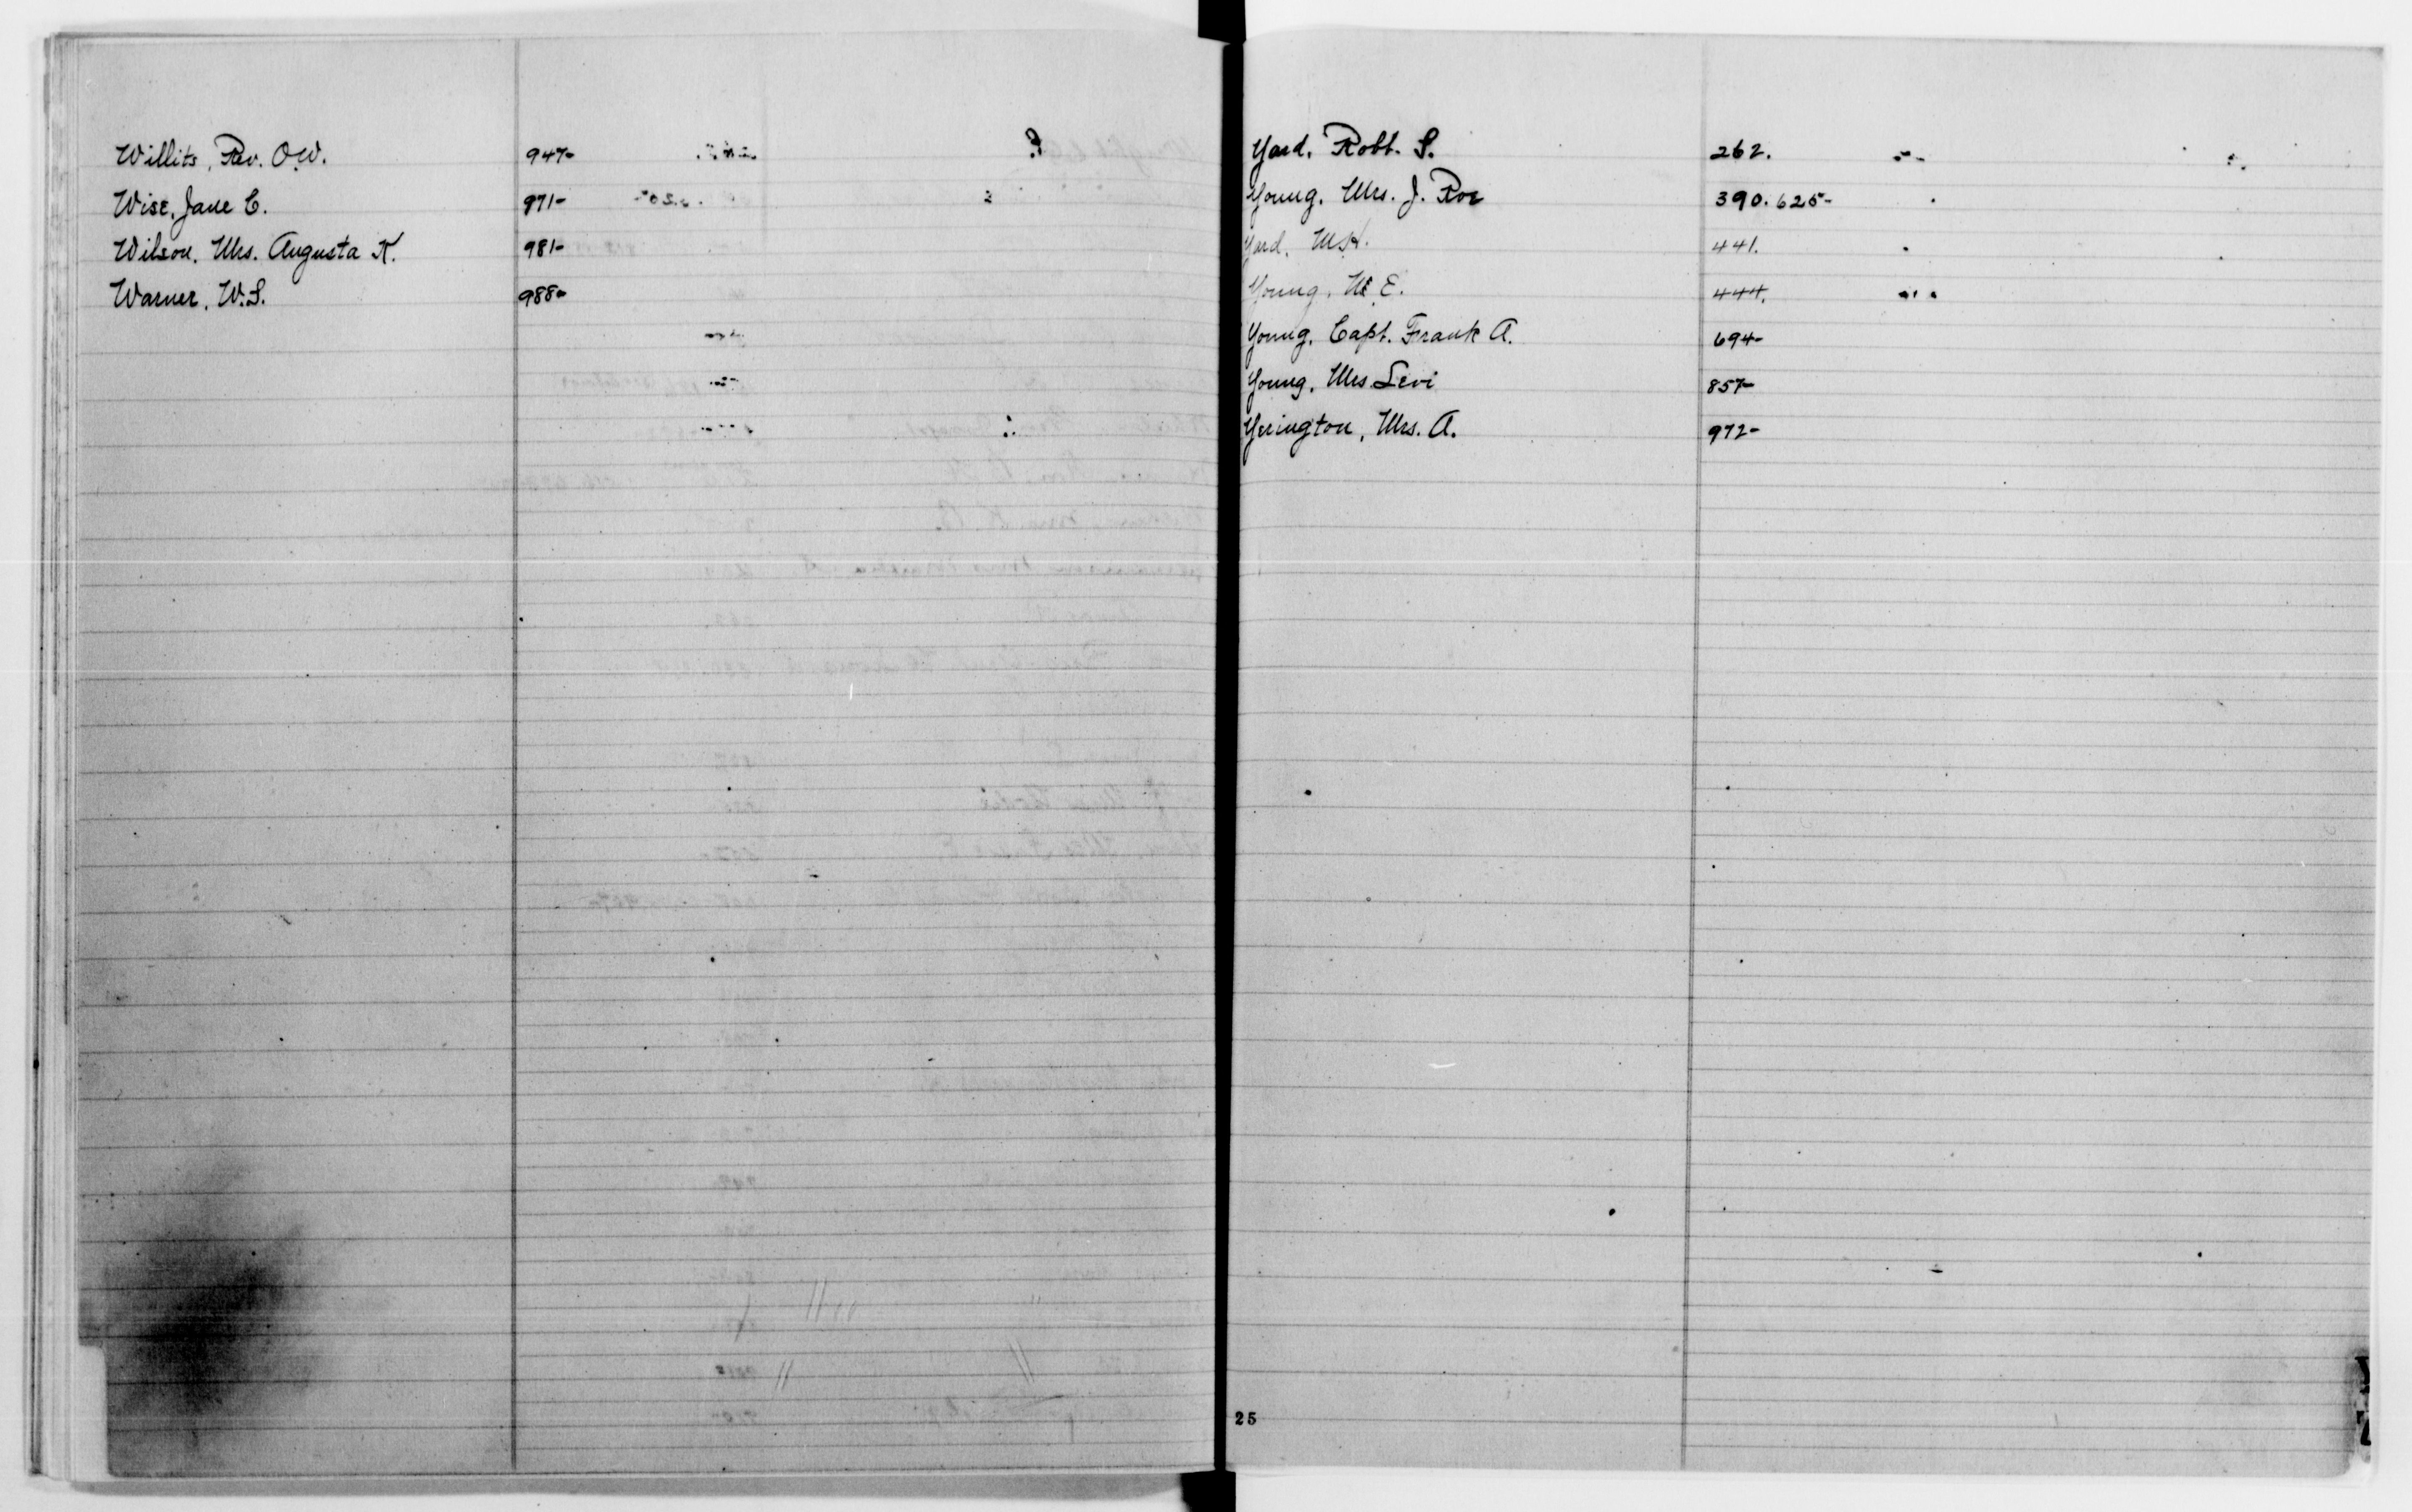 Willits, Rev. O.W. 947-
Wise, Jane C. 971-
Wilson, Mrs. Augusta K. 981-
Warner, W.S. 988-
Yard, Robt. S. 262.
Young, Mrs. J. Roe 390. 625-
Yard, W.H. 441.
Young, E. 444.
Young, Capt. Frank A. 694-
Young, Mrs Levi 857-
Yerington, Mrs. A. 972-
25
Y
Z